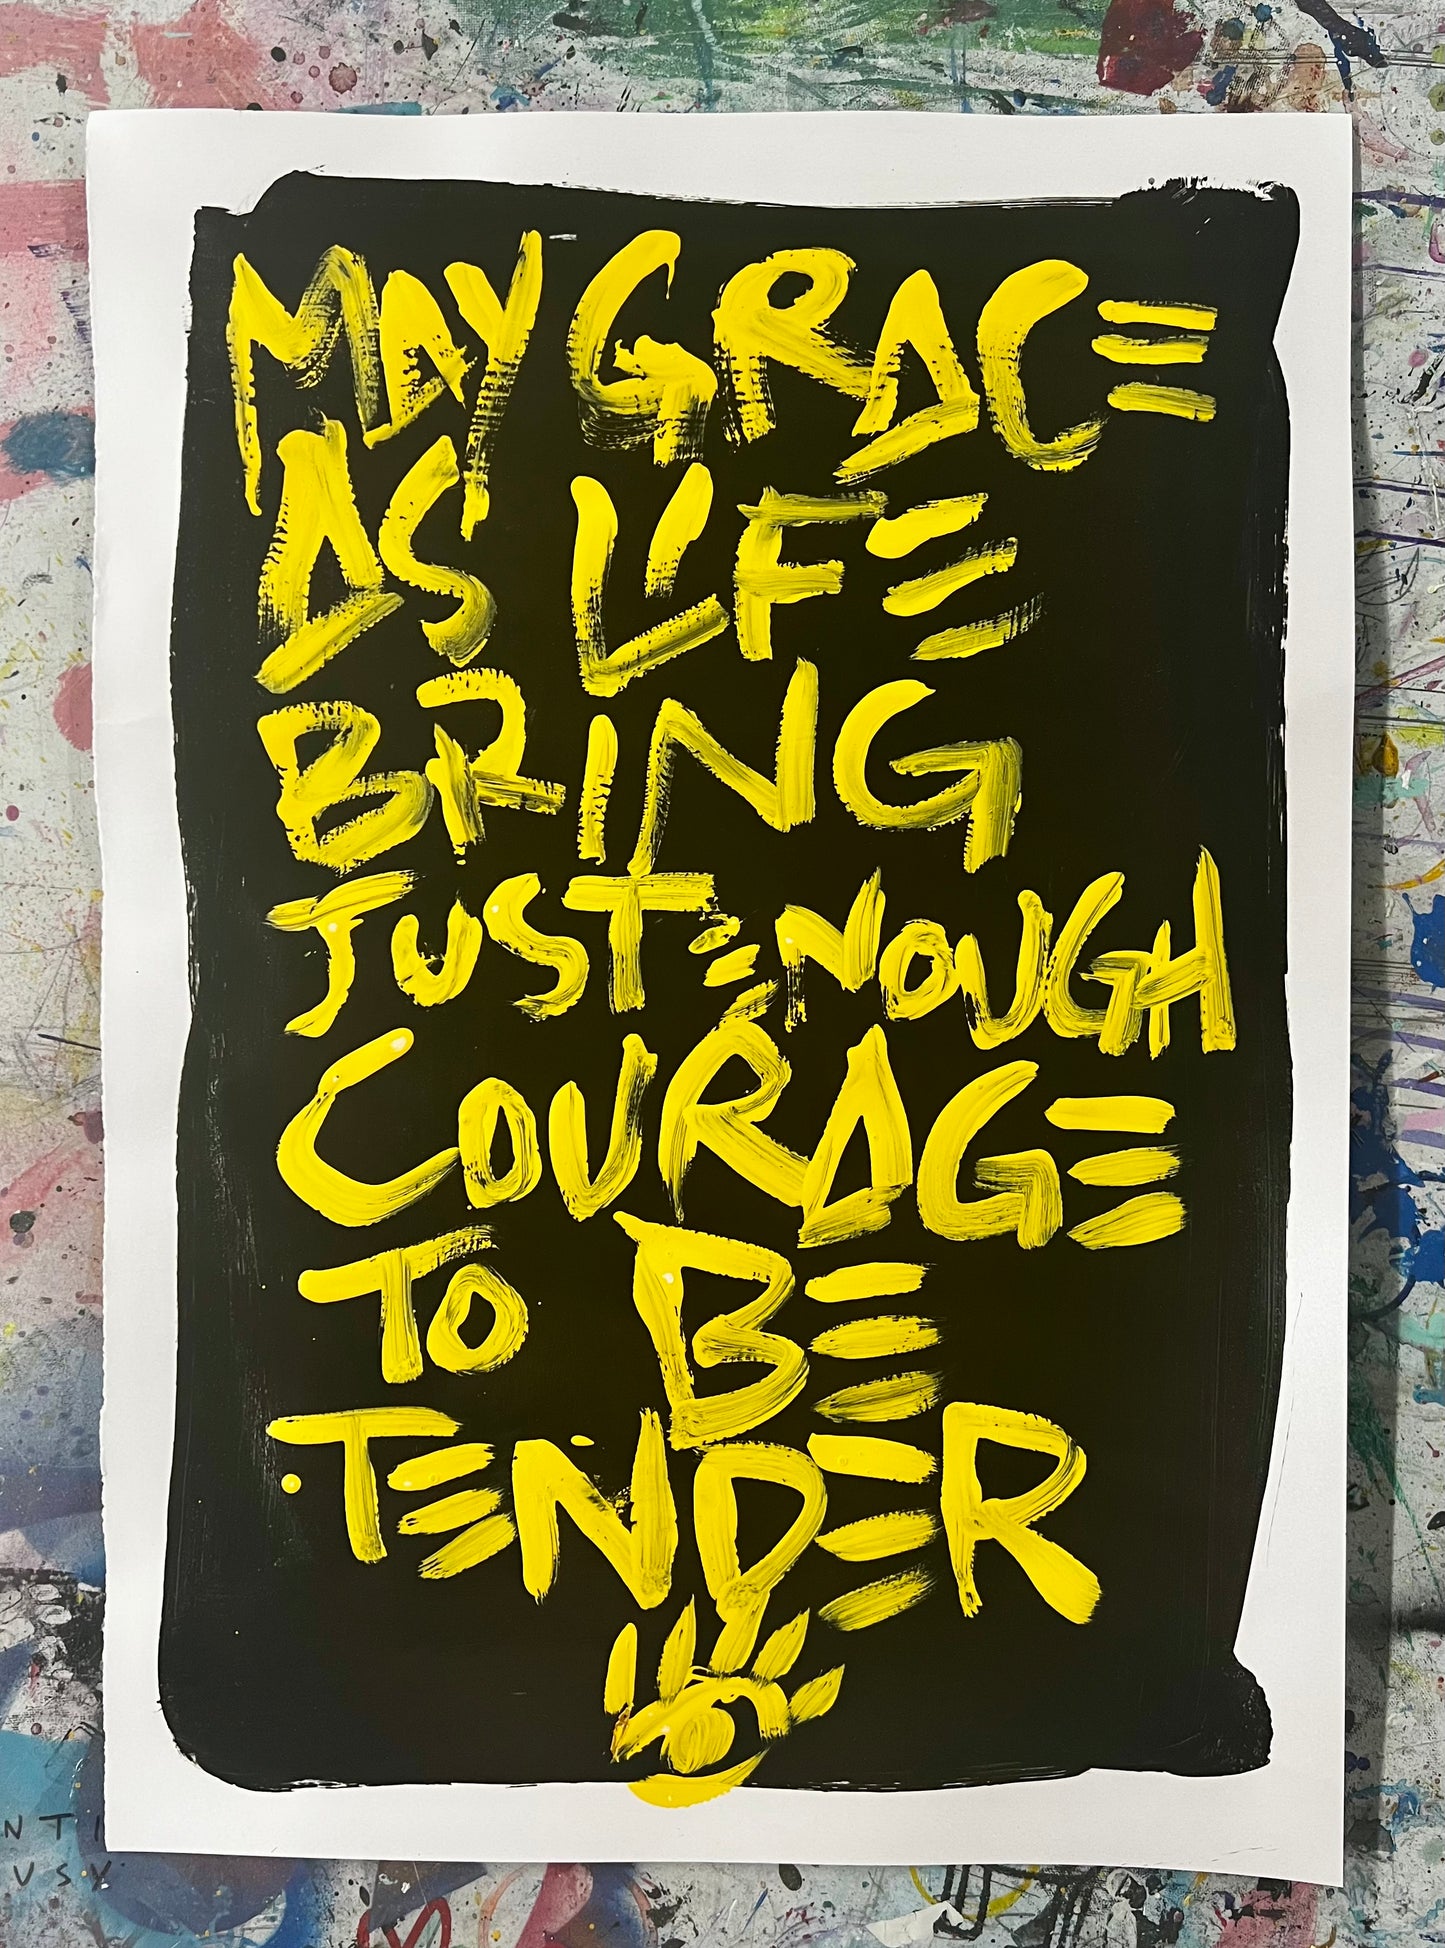 MAY GRACE
AS LIFE
BRING
JUST ENOUGH
COURAGE
TO BE
TENDER
NTI
USY